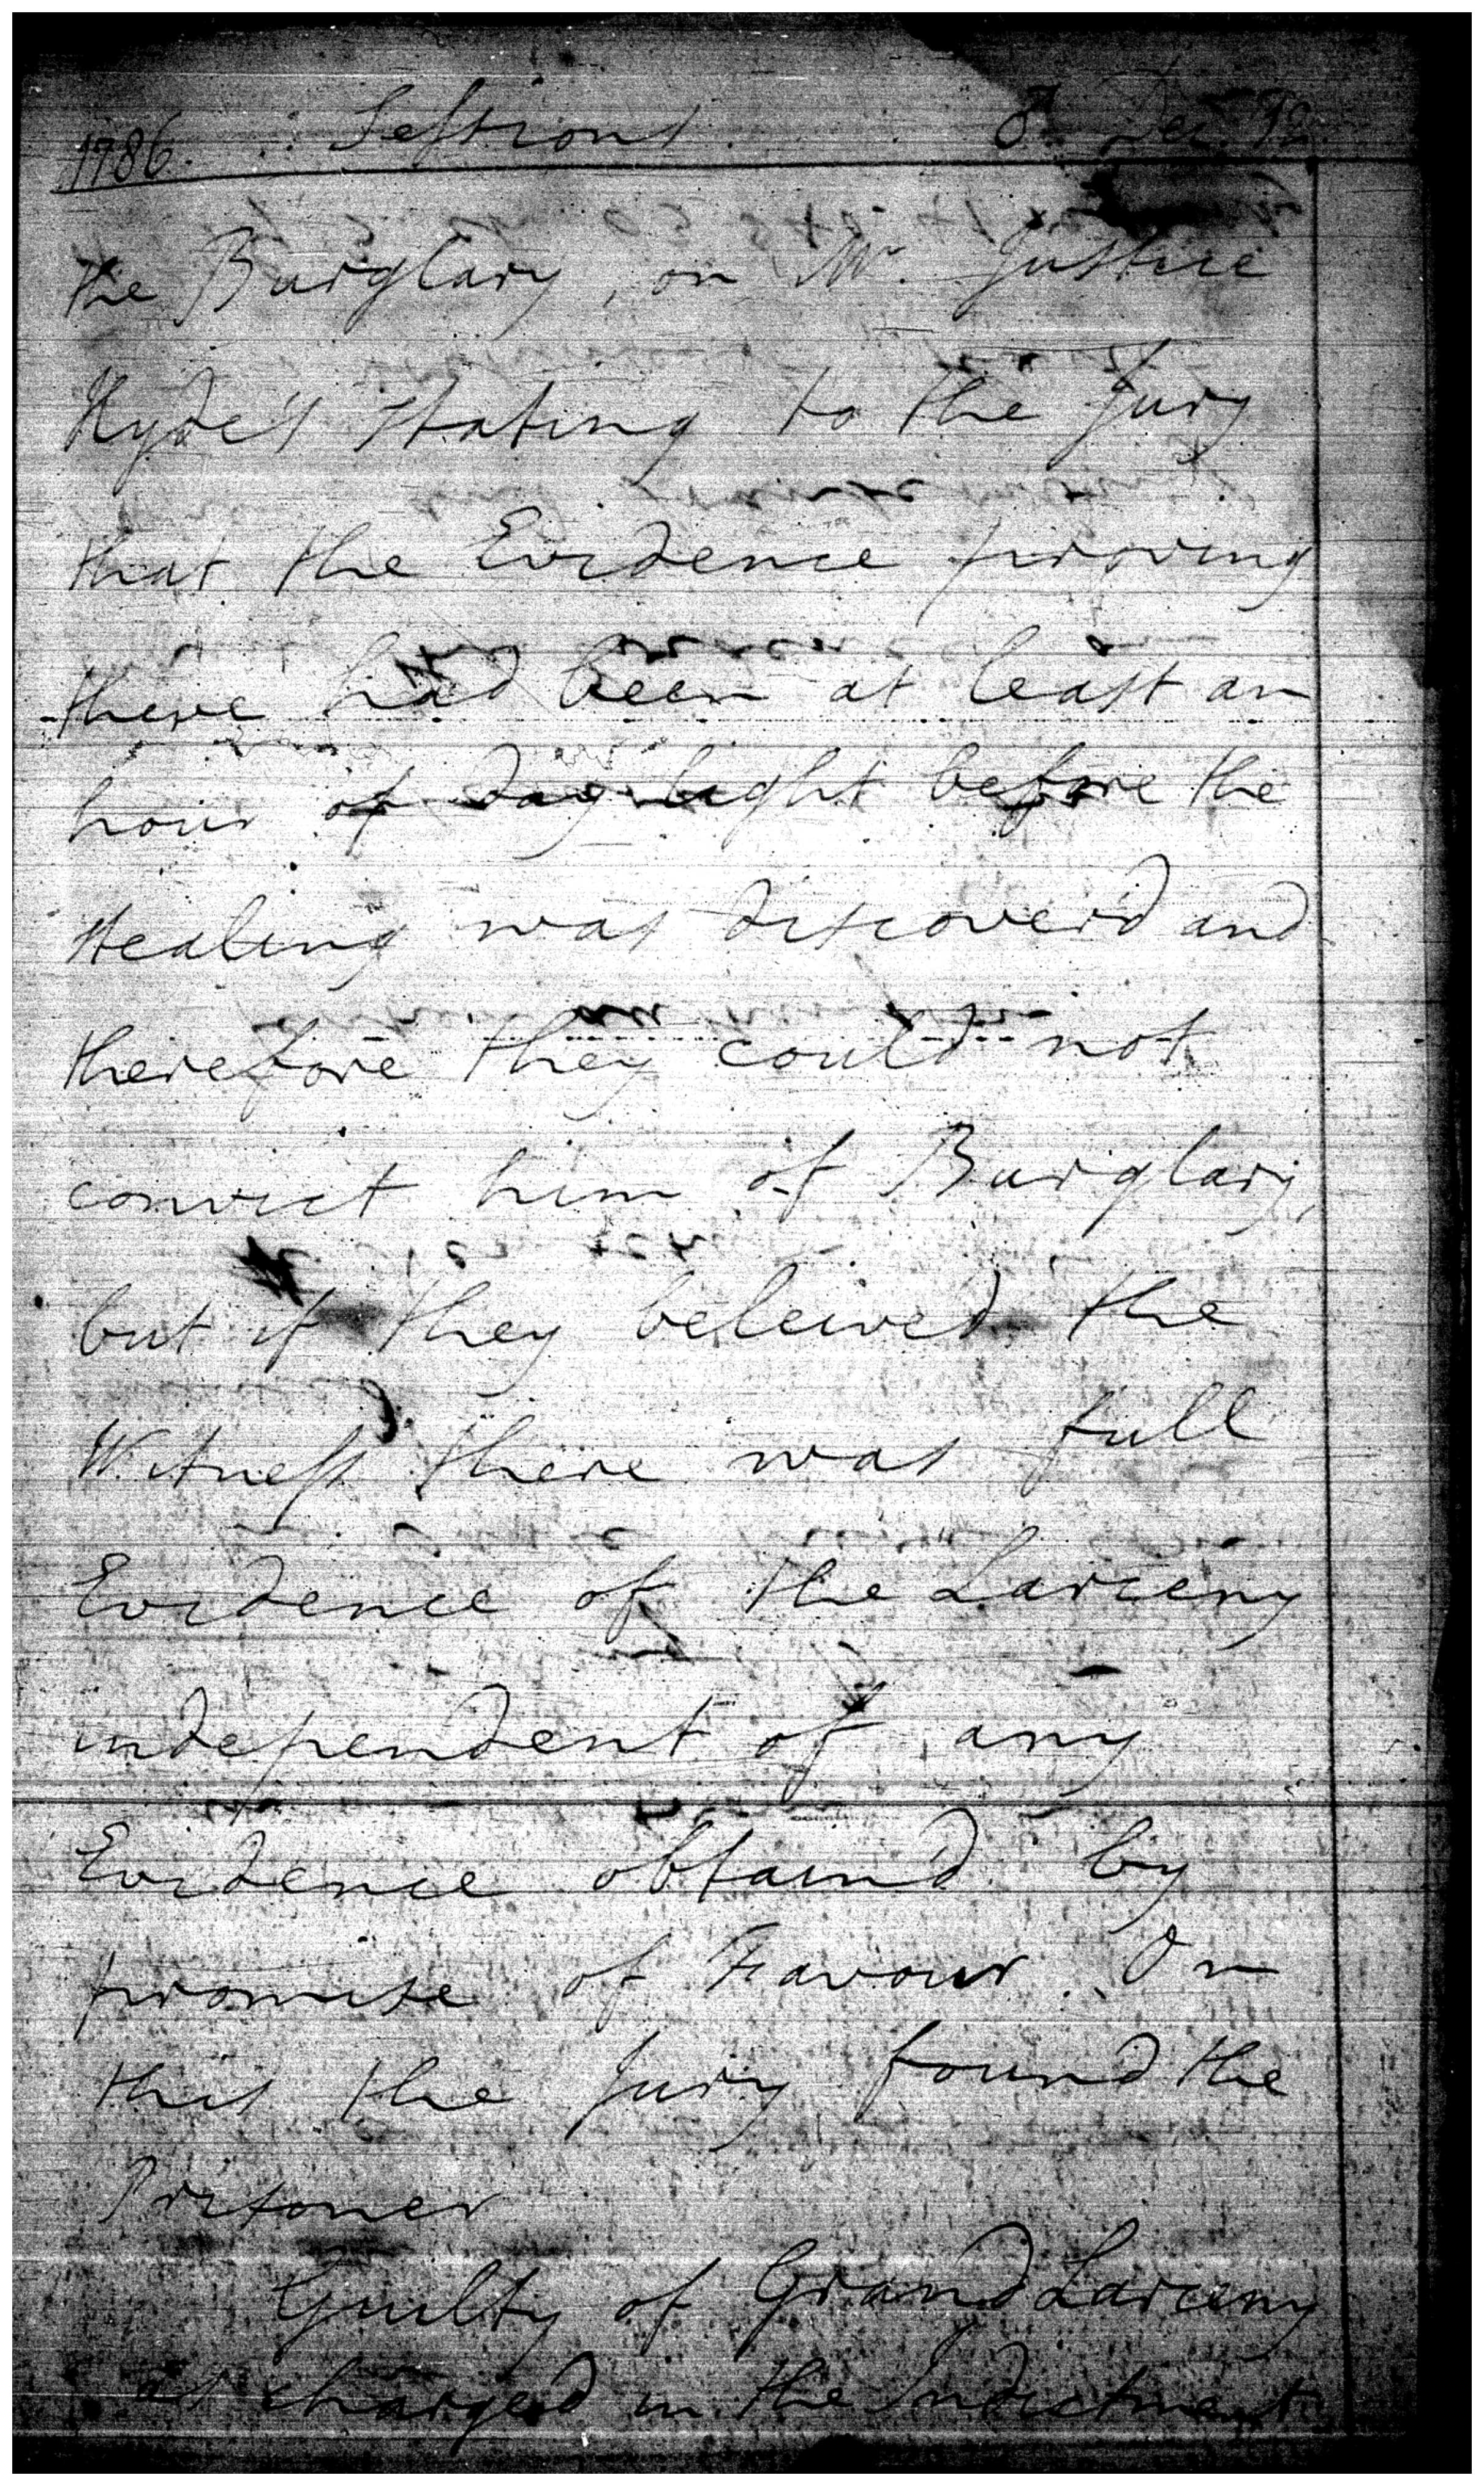 1786. Sessions Dec.
the Burglary, on Mr. Justice
Hyde's stating to the Jury
that the Evidence proving
there had been at least an
hour of Day light before the
stealing was discover'd and
therefore they could not
convict him of Burglary,
but if they beleived the
Witness there was full
Evidence of the Larceny
independent of any
Evidence obtain'd by
promise of Favour. On
this the Jury found the
Prisoner
Guilty of Grand Larceny
as charged in the Indictment